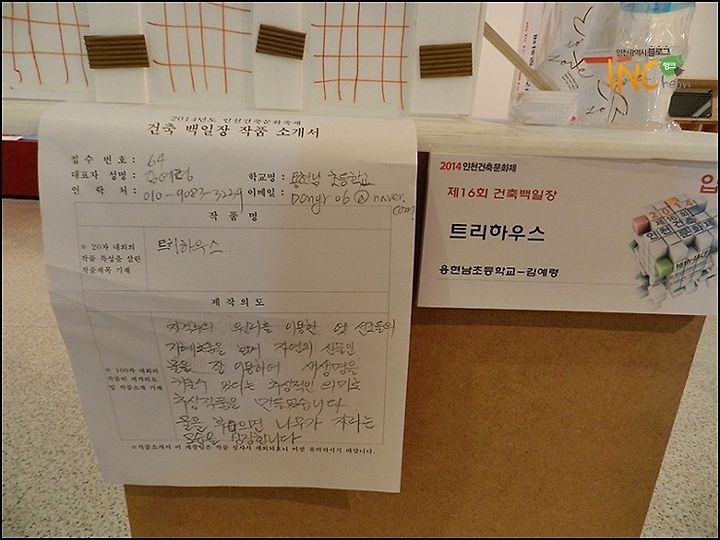 인천광역시 블로그
INC 잉크
heon
2014년도 인천건축문화축제
건축 백일장 작품 소개서
접수 번호 : 64
대표자 성명 : 김예령 학교명 : 용현남 초등학교
연 락 처 : 010-9083-3239 이메일 : Dongr06@naver.com
작 품 명
※ 20자 내외의
작품 특성을 살린
작품제목 기재
트리하우스
제 작 의 도
※ 100자 내외의
작품의 제작의도
및 작품소개 기재
원리를 이용한 옛 선조들의
자연의 선물인
물을 잘 이용하여 새생명을
추상적인 의미로
추상작품을 만들었습니다
물을 나무가 자라는
모습을 상상합니다
2014 인천건축문화제
제16회 건축백일장
입
트리하우스
용현남초등학교-김예령
2014
제16회
인천건축
문화제